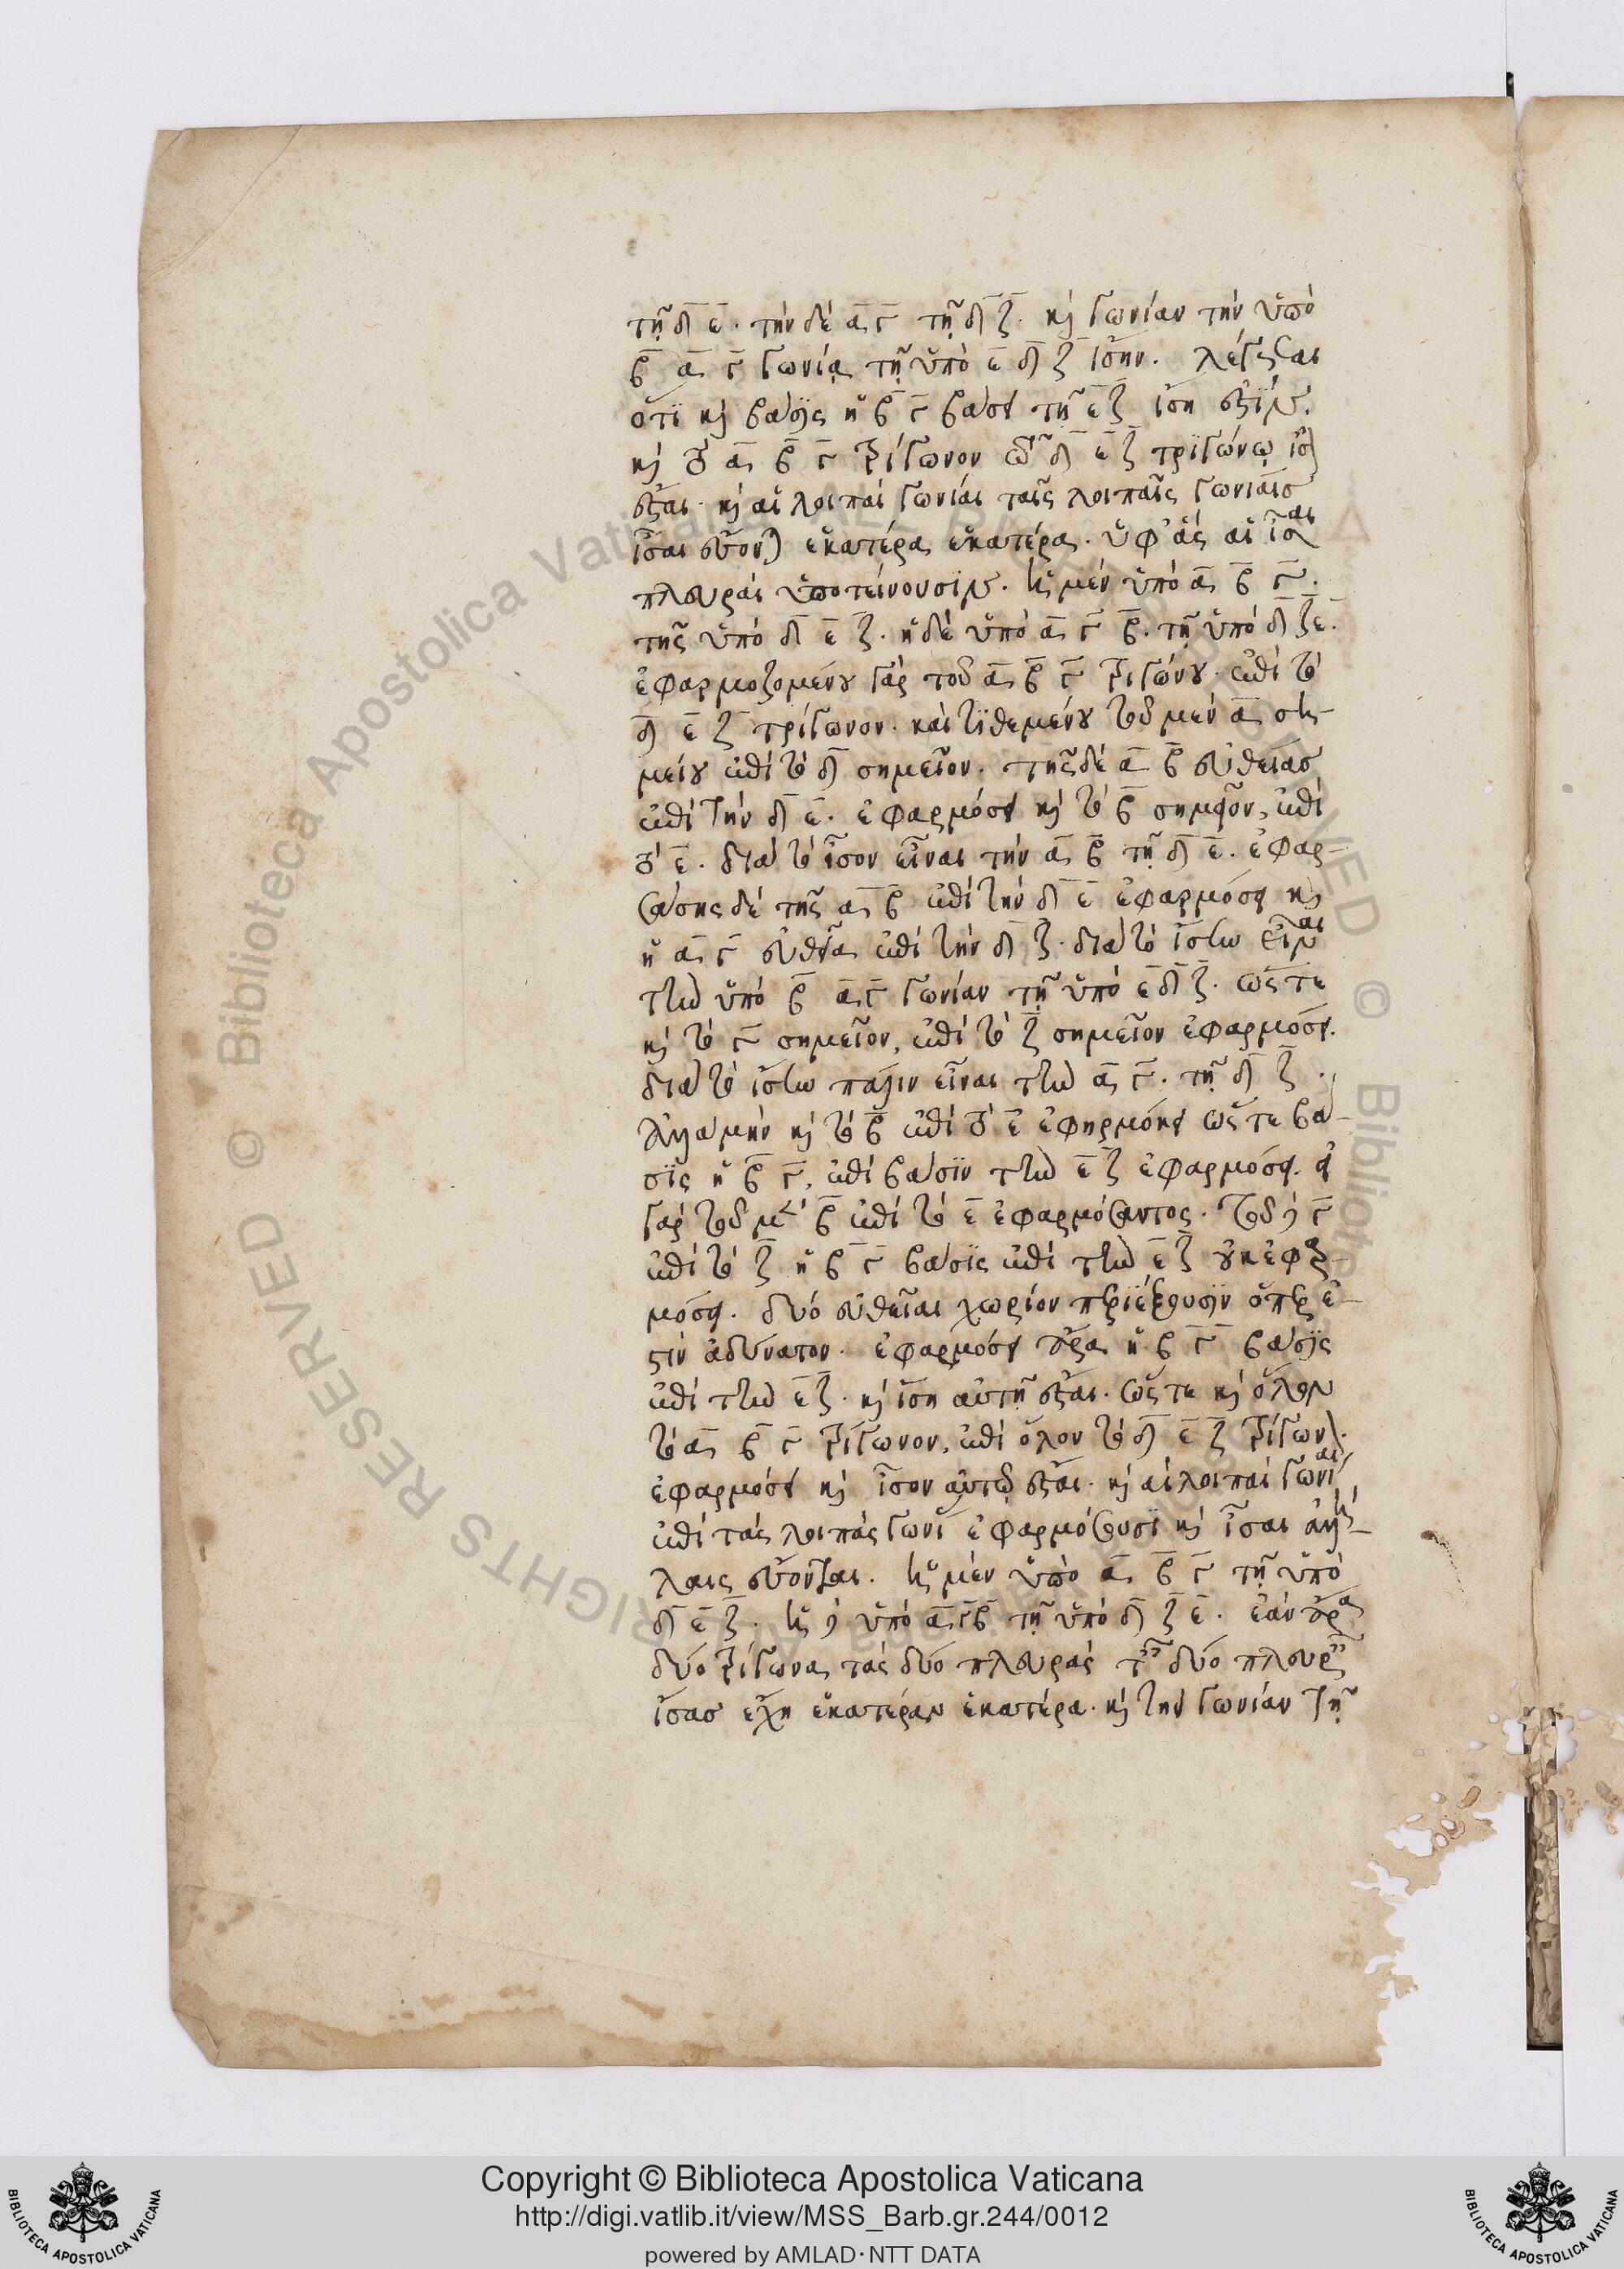 τῇ δ̅ ε̅. τὴν δὲ α̅ γ̅ τῇ δ̅ ζ̅. κ̀ γωνίαν τὴν ὑπὸ
β̅ α̅ γ̅ γωνίᾳ τῇ ὑπὸ ε̅ δ̅ ζ̅ ἴσην.
ὅτι κ̀ βάσις ἡ β̅ γ̅ βάσει τῇ ε̅ ζ̅ ἴση ἐστίν.
κ̀ τὸ α̅ β̅ γ̅ τρίγωνον τῷ δ̅ ε̅ ζ̅ τριγώνῳ ἴσ
ἔσται. κ̀ αἱ λοιπαὶ γωνίαι ταῖς λοιπαῖς γωνίαισ
ἴσαι ἔσονται ἑκατέρα ἑκατέρα. ὑφ' ἃς αἱ ἴσαι
πλευραὶ ὑποτείνουσιν. ἡ μὲν ὑπὸ α̅ β̅ γ̅.
τῆς ὑπὸ δ̅ ε̅ ζ̅. ἡ δὲ ὑπὸ α̅ γ̅ β̅. τῇ ὑπὸ δ̅ ζ̅ ε̅.
ἐφαρμοζομένου γὰρ τοῦ α̅ β̅ γ̅ τριγώνου ἐπὶ τὸ
δ̅ ε̅ ζ̅ τρίγωνον. καὶ τιθεμένου τοῦ μὲν α̅ ση-
μείου ἐπὶ τὸ δ̅ σημεῖον. τῆς δὲ α̅ β̅ εὐθείασ
ἐπὶ τὴν δ̅ ε̅. ἐφαρμόσει κ̀ τὸ β̅ σημεῖον, ἐπὶ
τὸ ε̅. διὰ τὸ ἴσον εἶναι τὴν α̅ β̅ τῇ δ̅ ε̅. ἐφαρ-
σάσης δὲ τῆς α̅ β̅ ἐπὶ τὴν δ̅ ε̅ ἐφαρμόσει κ̀
ἡ α̅ γ̅ εὐθεῖα ἐπὶ τὴν δ̅ ζ̅. διὰ τὸ ἴσην εἶναι
τὴν ὑπὸ β̅ α̅ γ̅ γωνίαν τῇ ὑπὸ ε̅ δ̅ ζ̅. ὥστε
κ̀ τὸ γ̅ σημεῖον, ἐπὶ τὸ ζ̅ σημεῖον ἐφαρμόσει.
διὰ τὸ ἴσην πάλιν εἶναι τὴν α̅ γ̅. τῇ δ̅ ζ̅.
Ἀλλὰ μὴν κ̀ τὸ β̅ ἐπὶ τὸ ε̅ ἐφηρμόκει ὥστε βά-
σις ἡ β̅ γ̅, ἐπὶ βάσιν τὴν ε̅ ζ̅ ἐφαρμόσει. εἰ
γὰρ τοῦ μὲν β̅ ἐπὶ τὸ ε̅ ἐφαρμόσαντος. τοῦ δὲ γ̅
ἐπὶ τὸ ζ̅ ἡ β̅ γ̅ βάσις ἐπὶ τὴν ε̅ ζ̅ οὐκ ἐφαρ-
μόσει. δύο εὐθεῖαι χωρίον περιέξουσιν ὅπερ ἐ-
στὶν ἀδύνατον. ἐφαρμόσει ἄρα ἡ β̅ γ̅ βάσις
ἐπὶ τὴν ε̅ ζ̅. κ̀ ἴση αὐτῇ ἔσται. ὥστε κ̀ ὅλον
τὸ α̅ β̅ γ̅ τρίγωνον, ἐπὶ ὅλον τὸ δ̅ ε̅ ζ̅ τρίγων.
ἐφαρμόσει κ̀ ἴσον αὐτῷ ἔσται. κ̀ αἱ λοιπαὶ γωνίαι
ἐπὶ τὰς λοιπὰς γωνί ἐφαρμόσουσι κ̀ ἴσαι ἀλλή-
λαις ἔσονται. ἡ μὲν ὑπὸ α̅ β̅ γ̅ τῇ ὑπὸ
δ̅ ε̅ ζ̅. ἡ δὲ ὑπὸ α̅ γ̅ β̅ τῇ ὑπὸ δ̅ ζ̅ ε̅. ἐὰν ἄρα
δύο τρίγωνα τὰς δύο πλευρὰς ταῖς δύο πλευραῖς
ἴσασ ἔχη ἑκατέραν ἑκατέρα. κ̀ τὴν γωνίαν τῇ
Copyright © Biblioteca Apostolica Vaticana
http://digi.vatlib.it/view/MSS_Barb.gr.244/0012
powered by AMLAD·NTT DATA